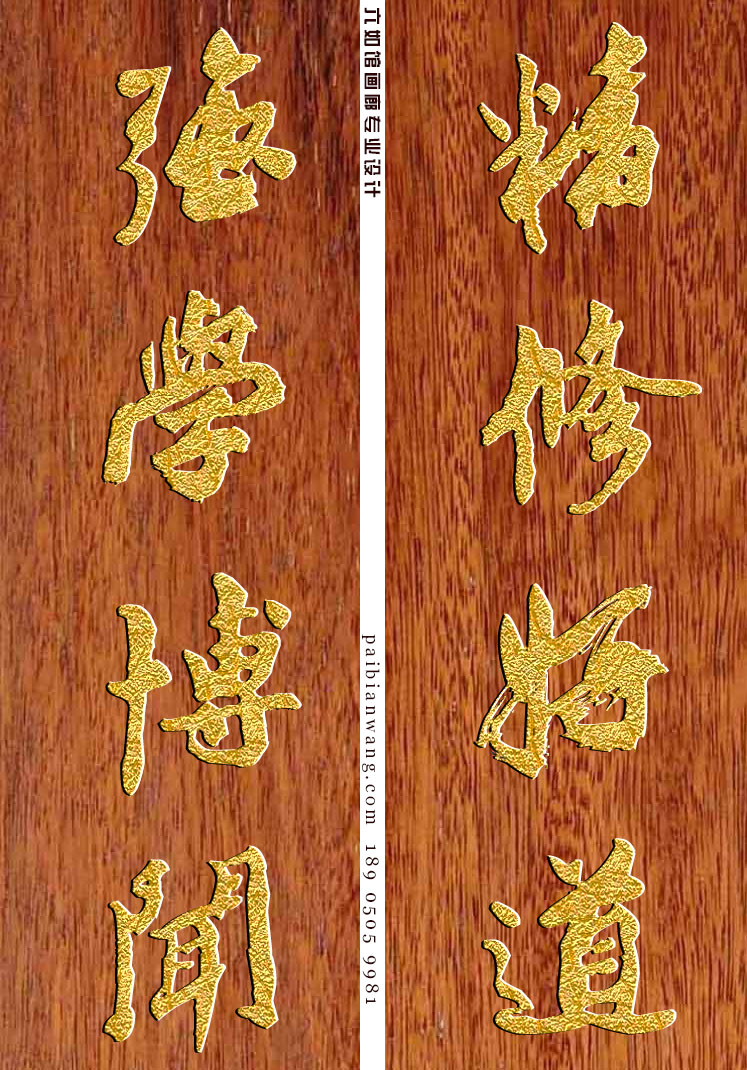 精修道
強學博聞
六如馆画廊专业设计
paibianwang.com 189 0505 9981